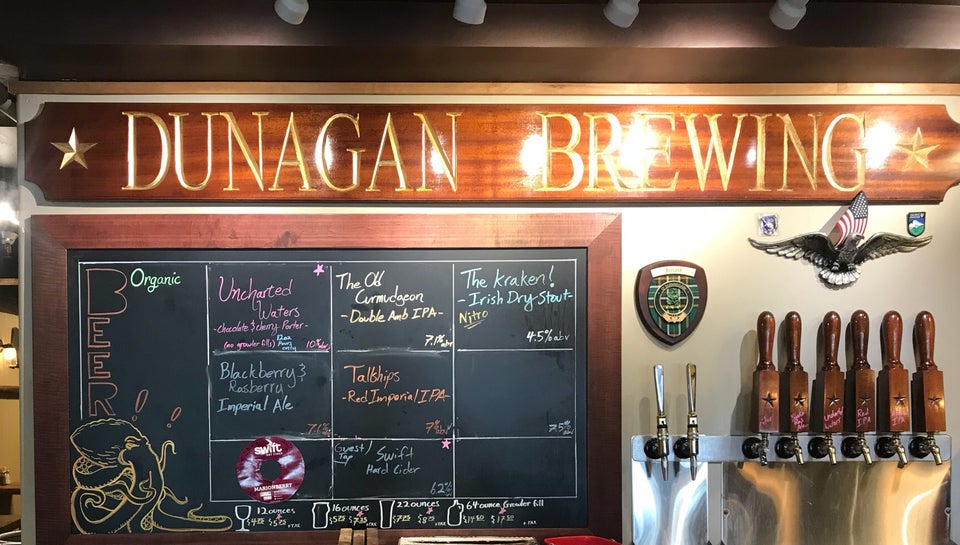 DUNAGAN BREWING
BEER!!
Organic
Uncharted
Waters
-Chocolate & Cherry Porter-
(no growler fills) 12oz Pours only 10% abv
The Old
Curmudgeon
-Double Amb IPA-
7.1% abv
The Kraken!
-Irish Dry Stout-
Nitro
4.5% abv
Blackberry &
Rasberry
Imperial Ale
Tallships
-Red Imperial IPA-
7% abv
7.5% abv
swift
MARIONBERRY
Guest/
Tap
Swift
Hard Cider
6.2%
12 ounces
+TAX
16 ounces
+TAX
22 ounces
+TAX
64 ounce Growler fill
+TAX
Red
IPA